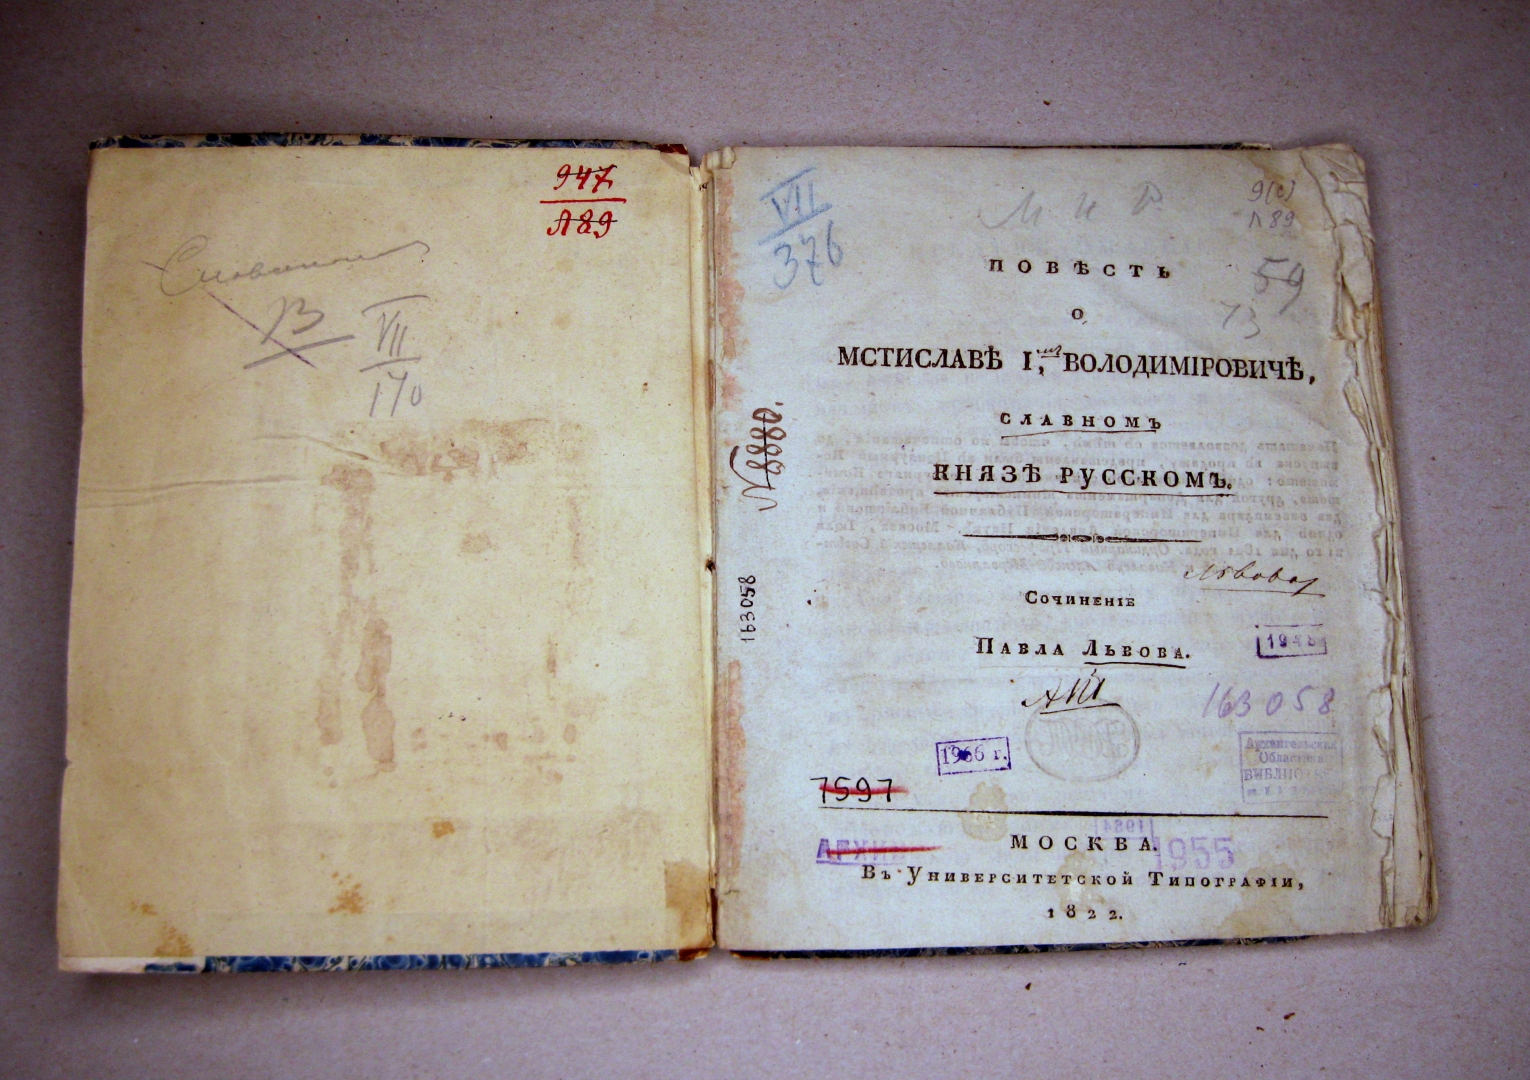 947
Л89
VII
170
VII
376
М и Р
9(с)
Л89
59
73
ПОВѢСТЬ
О
МСТИСЛАВѢ I, ВОЛОДИМІРОВИЧѢ,
СЛАВНОМЪ
КНЯЗѢ РУССКОМЪ.
№ 8880.
163058
Львова
СОЧИНЕНІЕ
ПАВЛА ЛЬВОВА.
1948
163058
1966 г.
Архангельская
Областная
БИБЛИОТЕКА
7597
АРХИВ
МОСКВА.
1955
ВЪ УНИВЕРСИТЕТСКОЙ ТИПОГРАФІИ,
1822.